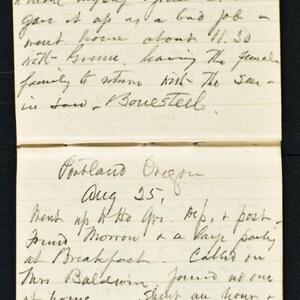 gave it up as a bad job &
went home about 11.30
with Greene, leaving the female
family to return with the
in law, Bonesteel.
Portland Oregon
Aug 25,
Went up to Hd Qrs. Dep, & post -
Found Morrow & a large party
at Breakfast - Called on
Mrs. Baldwin, found no one
at home. Spent an hour &